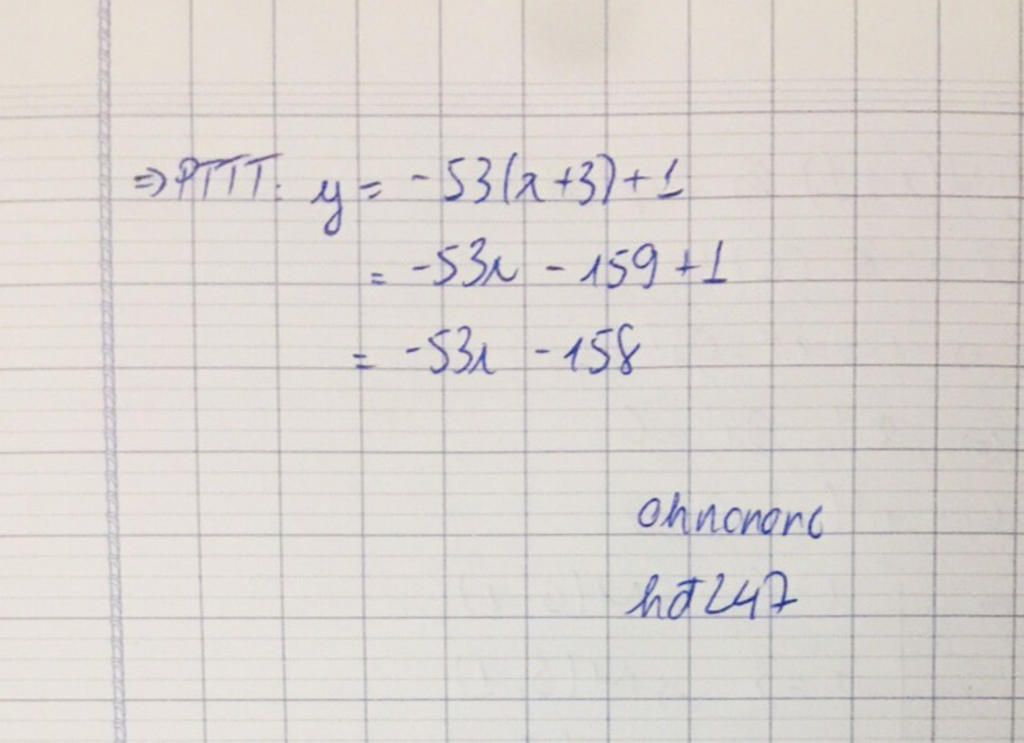 ⇒ PTTT: y = -53(x+3)+1
= -53x - 159 +1
= -53x - 158
ohnonono
hđ247